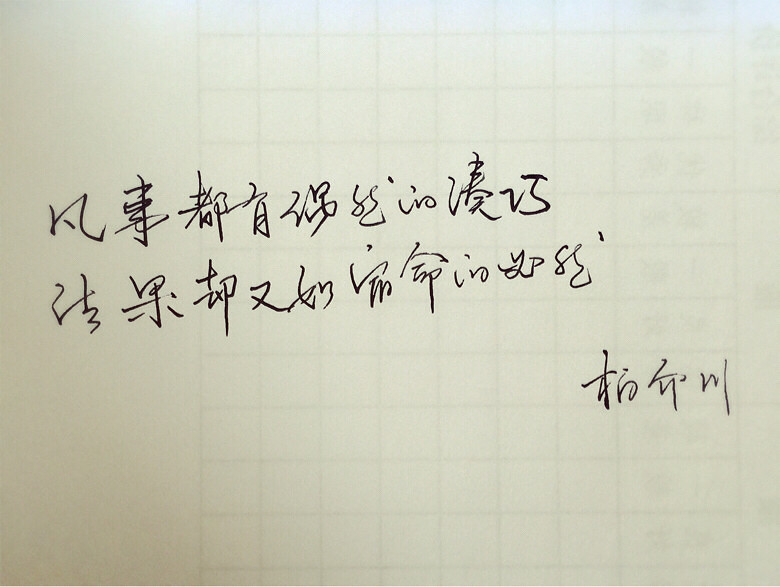 凡事都有偶然的凑巧
结果却又如宿命的必然